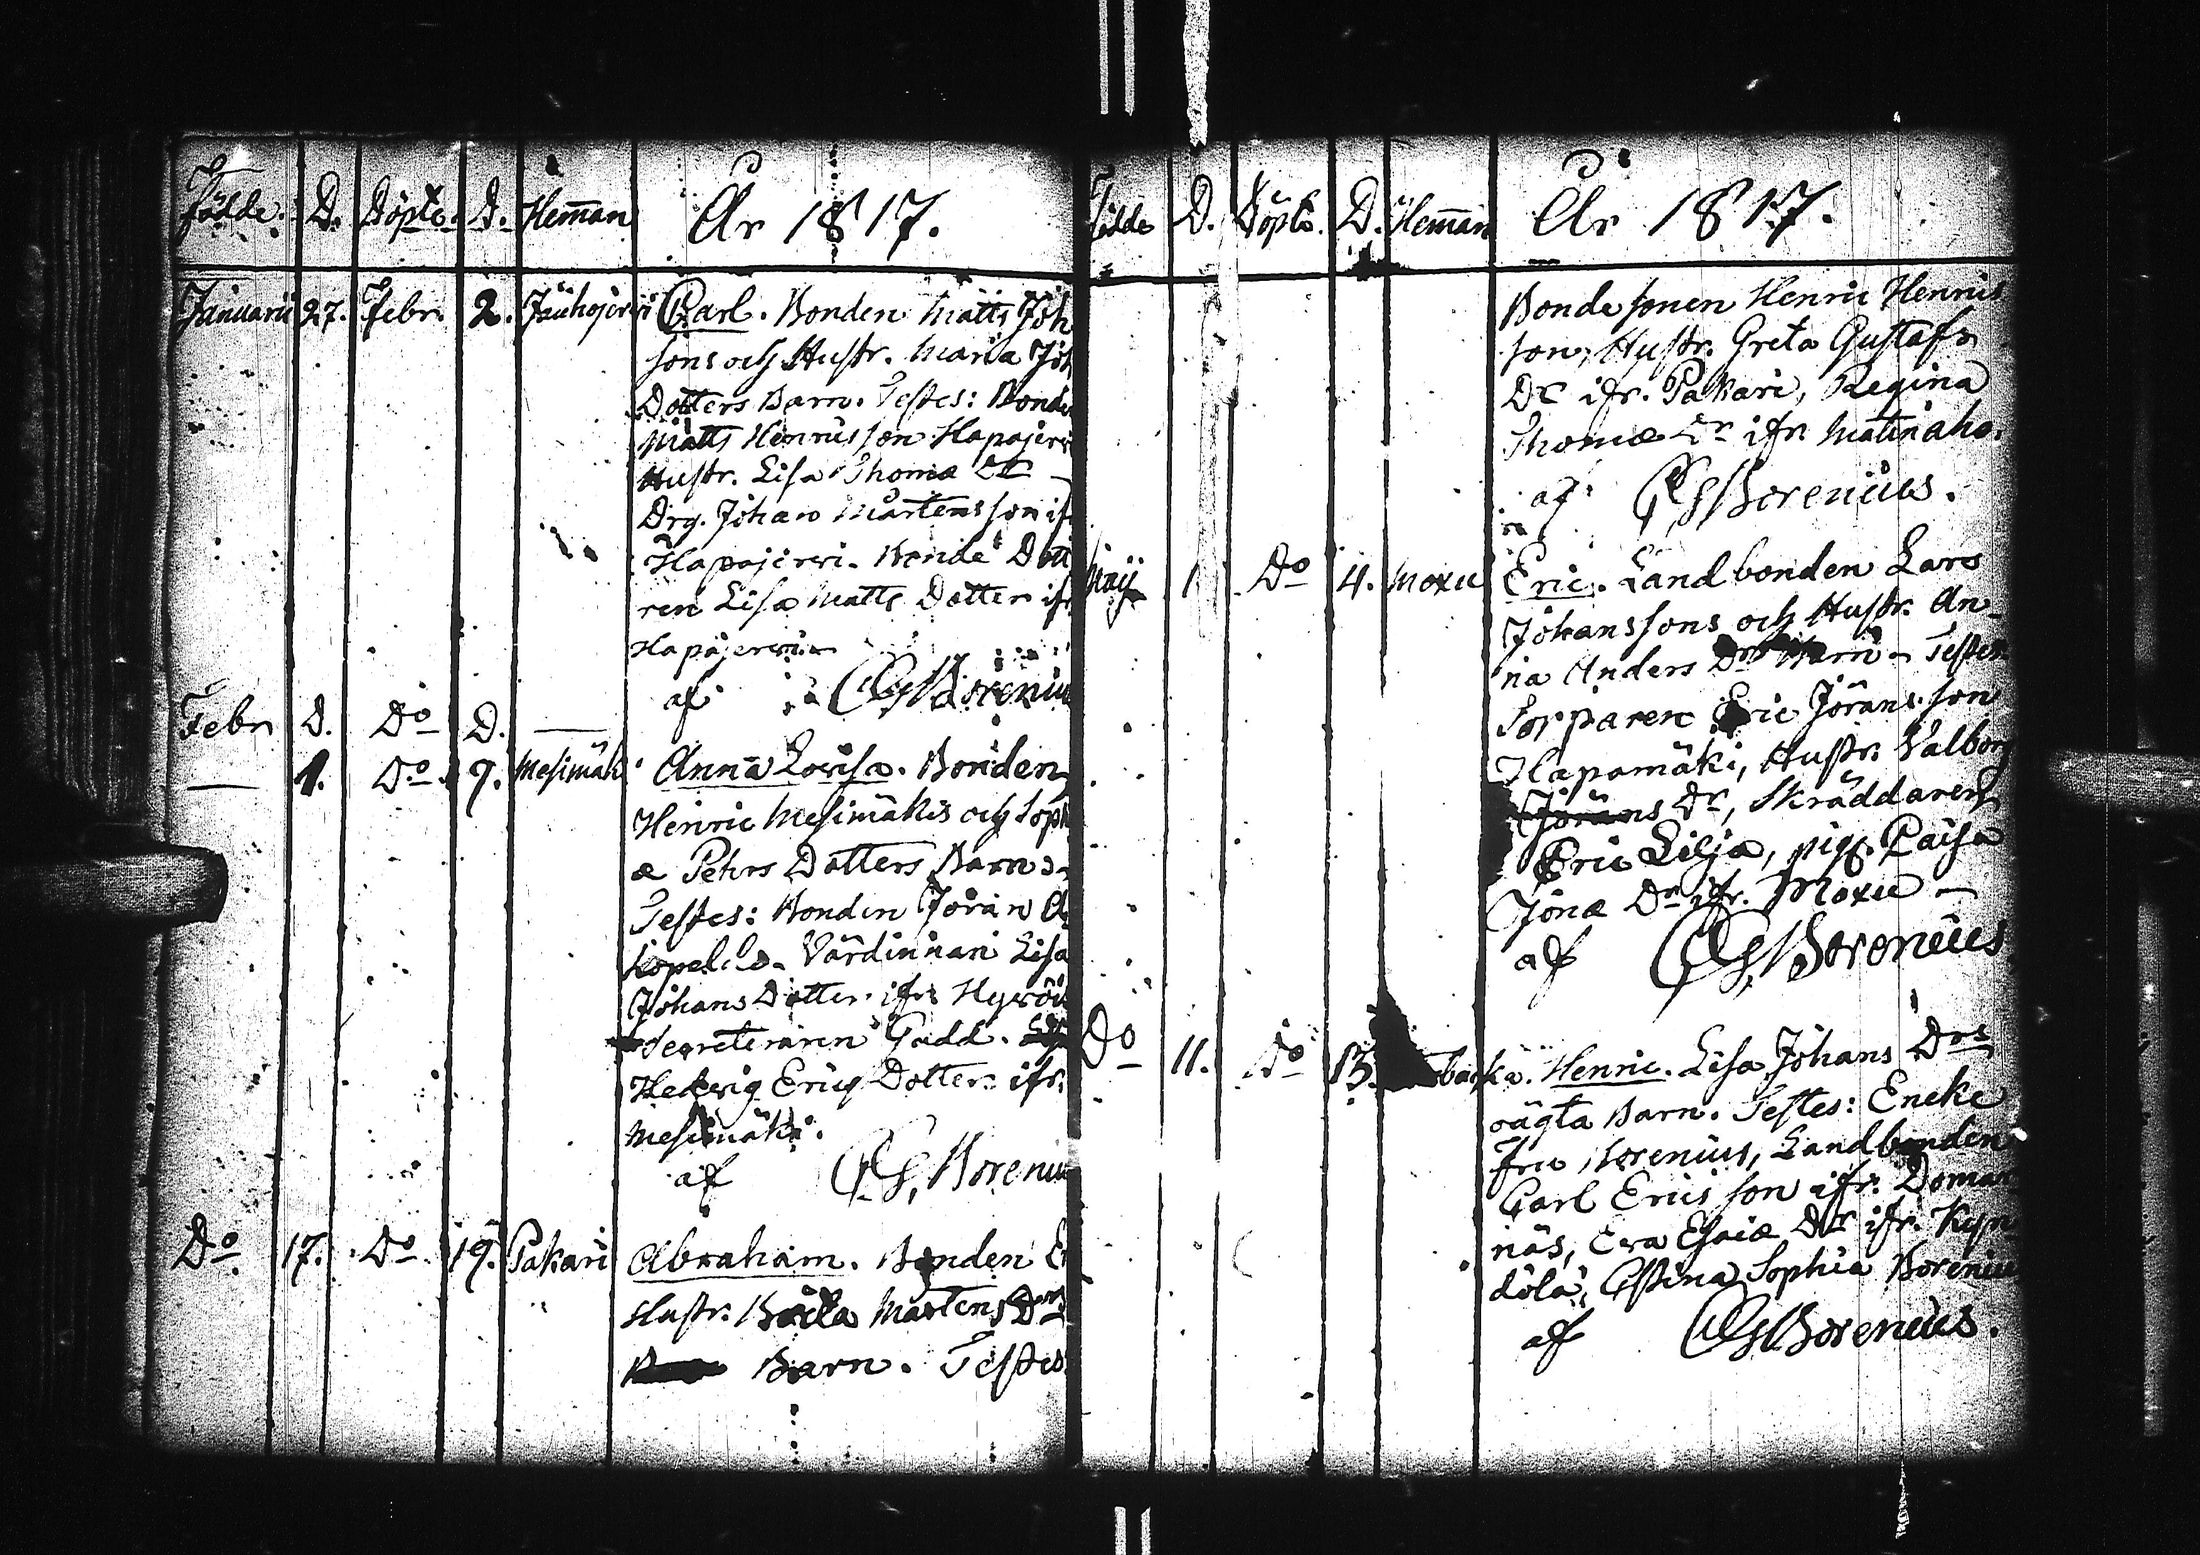 Födde. D. Döpte. D. Hem̄an År 1817.
Januarii 27. Febr. 2. Carl. Bonden Matts Joh
sons och Hustr. Maria Joh
Dotters Barn. Testes: Bonde
Matts Henricsson Hapajerwi
Hustr. Lisa Thomæ Dr
Drg. Johan Mårtensson if
Hapajerwi. Bonde Dott
ren Lisa Matts Dotter ifr
Hapajerwi
af CGBoreniu
Febr D. Do D. —
— 1. Do 9. Mesimäki Anna Lovisa. Bonden
Henric Mesimäkis och Soph
æ Pehrs Dotters Barn.
Testes: Bonden Jöran
Värdinnan Lisa
Johans Dotter ifr
Secreteraren Gadd.
Hedvig Erics Dotter ifr.
Mesimäki.
af CG, Boreniu
Do 17. Do 19. Pakari Abraham. Bonden Er
Hustr. Mårtens Drs
Barn. Testes
Födde D. Döpte. D. Hem̄an År 1817.
Bondesonen Henric Henrics
son, Hustr. Greta Gustafs
Dr ifr. Pakari, Regina
Thomæ Dr ifr Matinaho.
af CGBorenius.
Maij 1 Do 4. Moxu Eric. Landbonden Lars
Johanssons och Hustr. An
na Anders Drs Barn - Testes
Torparen Eric Jöransson
Hapamäki, Hustr. Valborg
Jörans Dr, Skräddaren
Eric Lilja, pig. Caisa
Jonæ Dr ifr. Moxu —
af CG, Borenius
Do 11. Do 13. Henric. Lisa Johans Drs
oägta Barn. Testes: Encke
fru Borenius, Landbonden
Carl Ericsson ifr. Domar
näs, Eva Esaiæ Dr ifr. Kyn
dölä, Stina Sophia Boreniu
af CGBorenius.